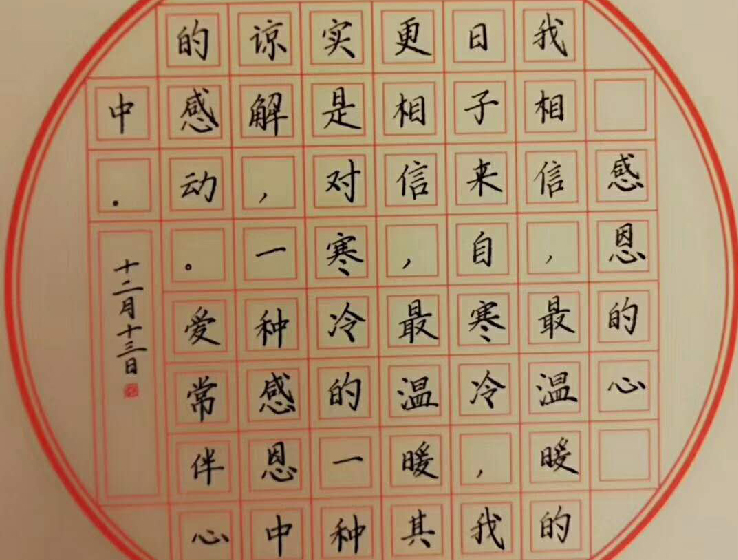 感恩的心
我相信，最温暖的
日子来自寒冷，我
更相信，最温暖其
实是对寒冷的一种
谅解，一种感恩中
的感动。爱常伴心
中.
十二月十三日